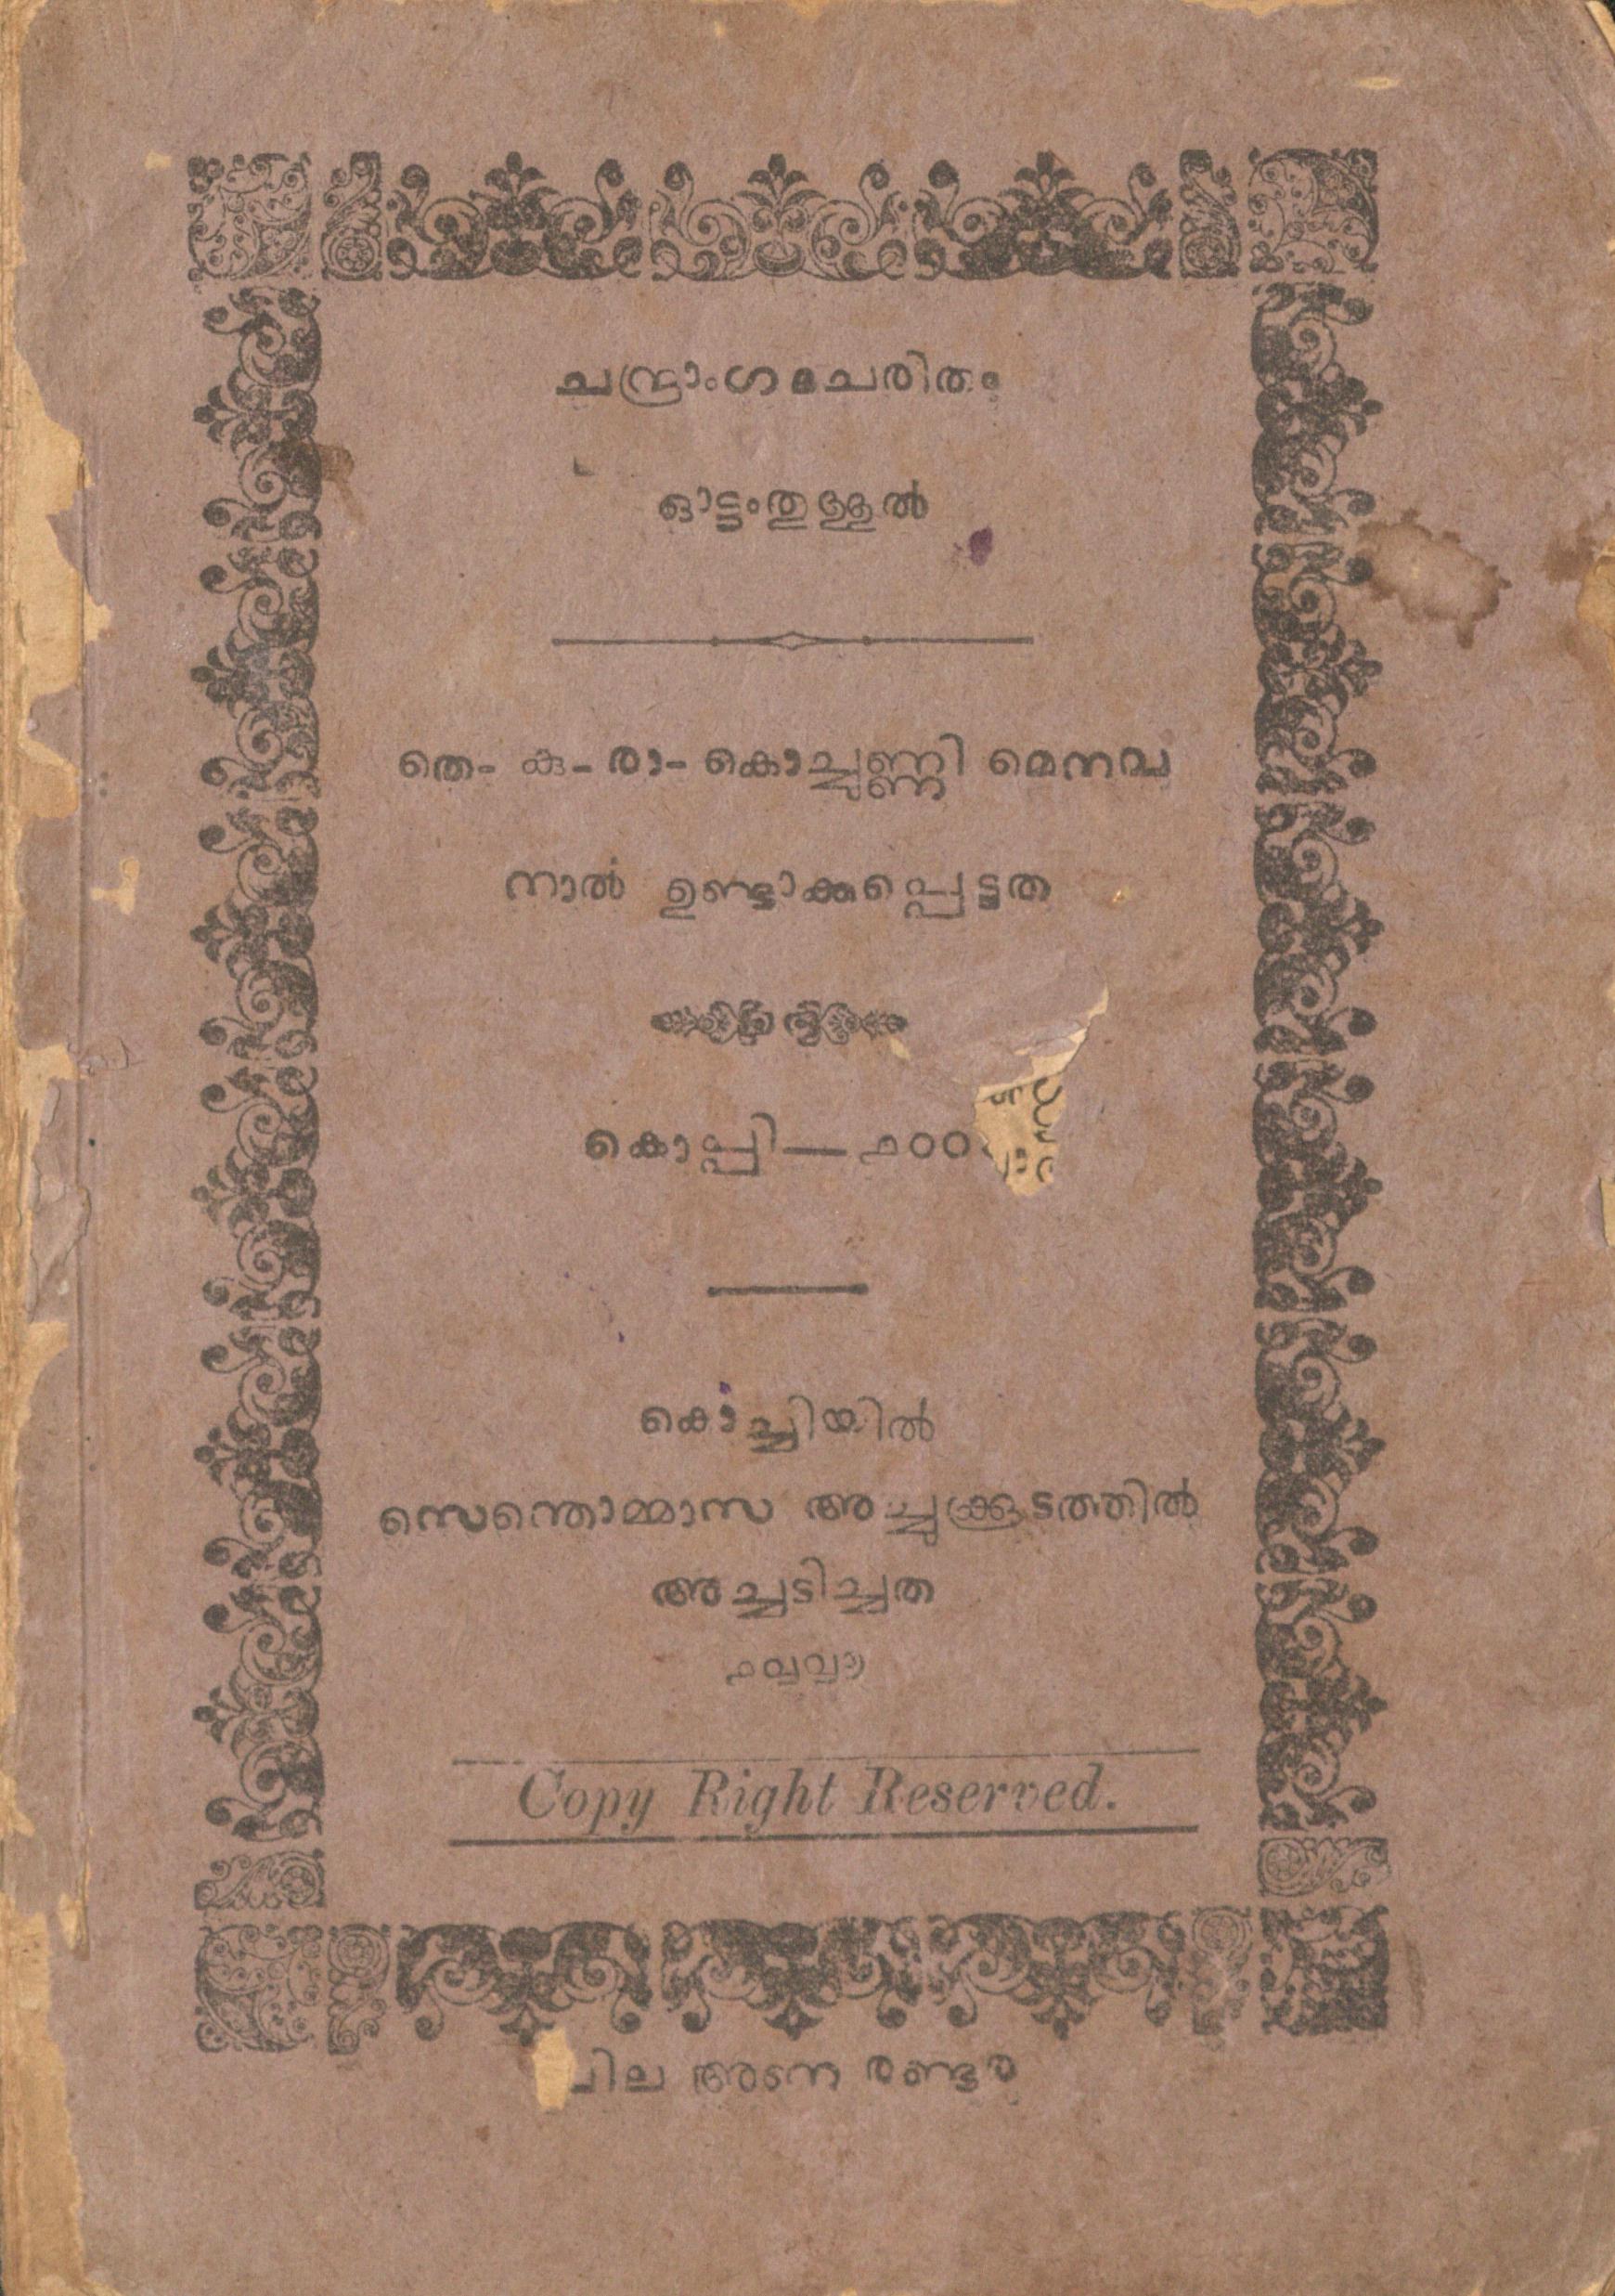 ചന്ദ്രാംഗദചരിതം
ഓട്ടംതുള്ളൽ
തെ- കു- രാ- കൊച്ചുണ്ണി മെനവ
നാൽ ഉണ്ടാക്കപ്പെട്ടത
കൊപ്പി— ൧൦൦
കൊച്ചിയിൽ
സെന്തൊമ്മാസ അച്ചുക്കൂടത്തിൽ
അച്ചടിച്ചത
Copy Right Reserved.
വില അടന്ന രണ്ടര